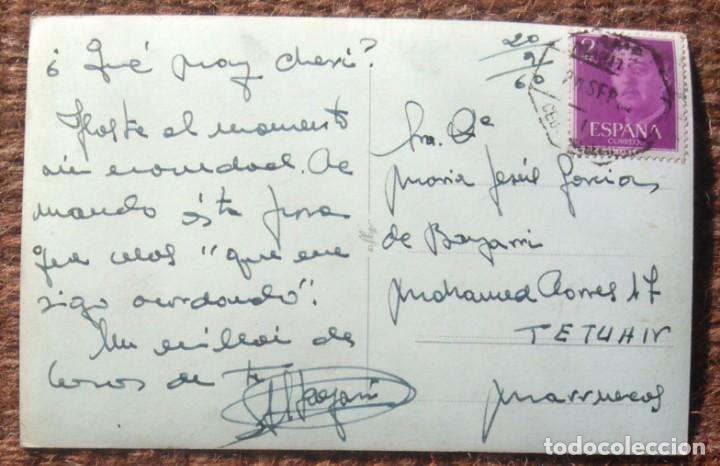 ¿ Qué hay cheri?
Hasta el momento
sin novedad. Te
mando ésta para
que veas "que me
sigo acordando".
Un millón de
besos de tu
20
9
60
Sra. Dª
Maria Jesús Garcias
de Bayarri
Mohamed Torres 17
TETUAN
Marruecos
2
ESPAÑA
CORREOS
todocoleccion.net